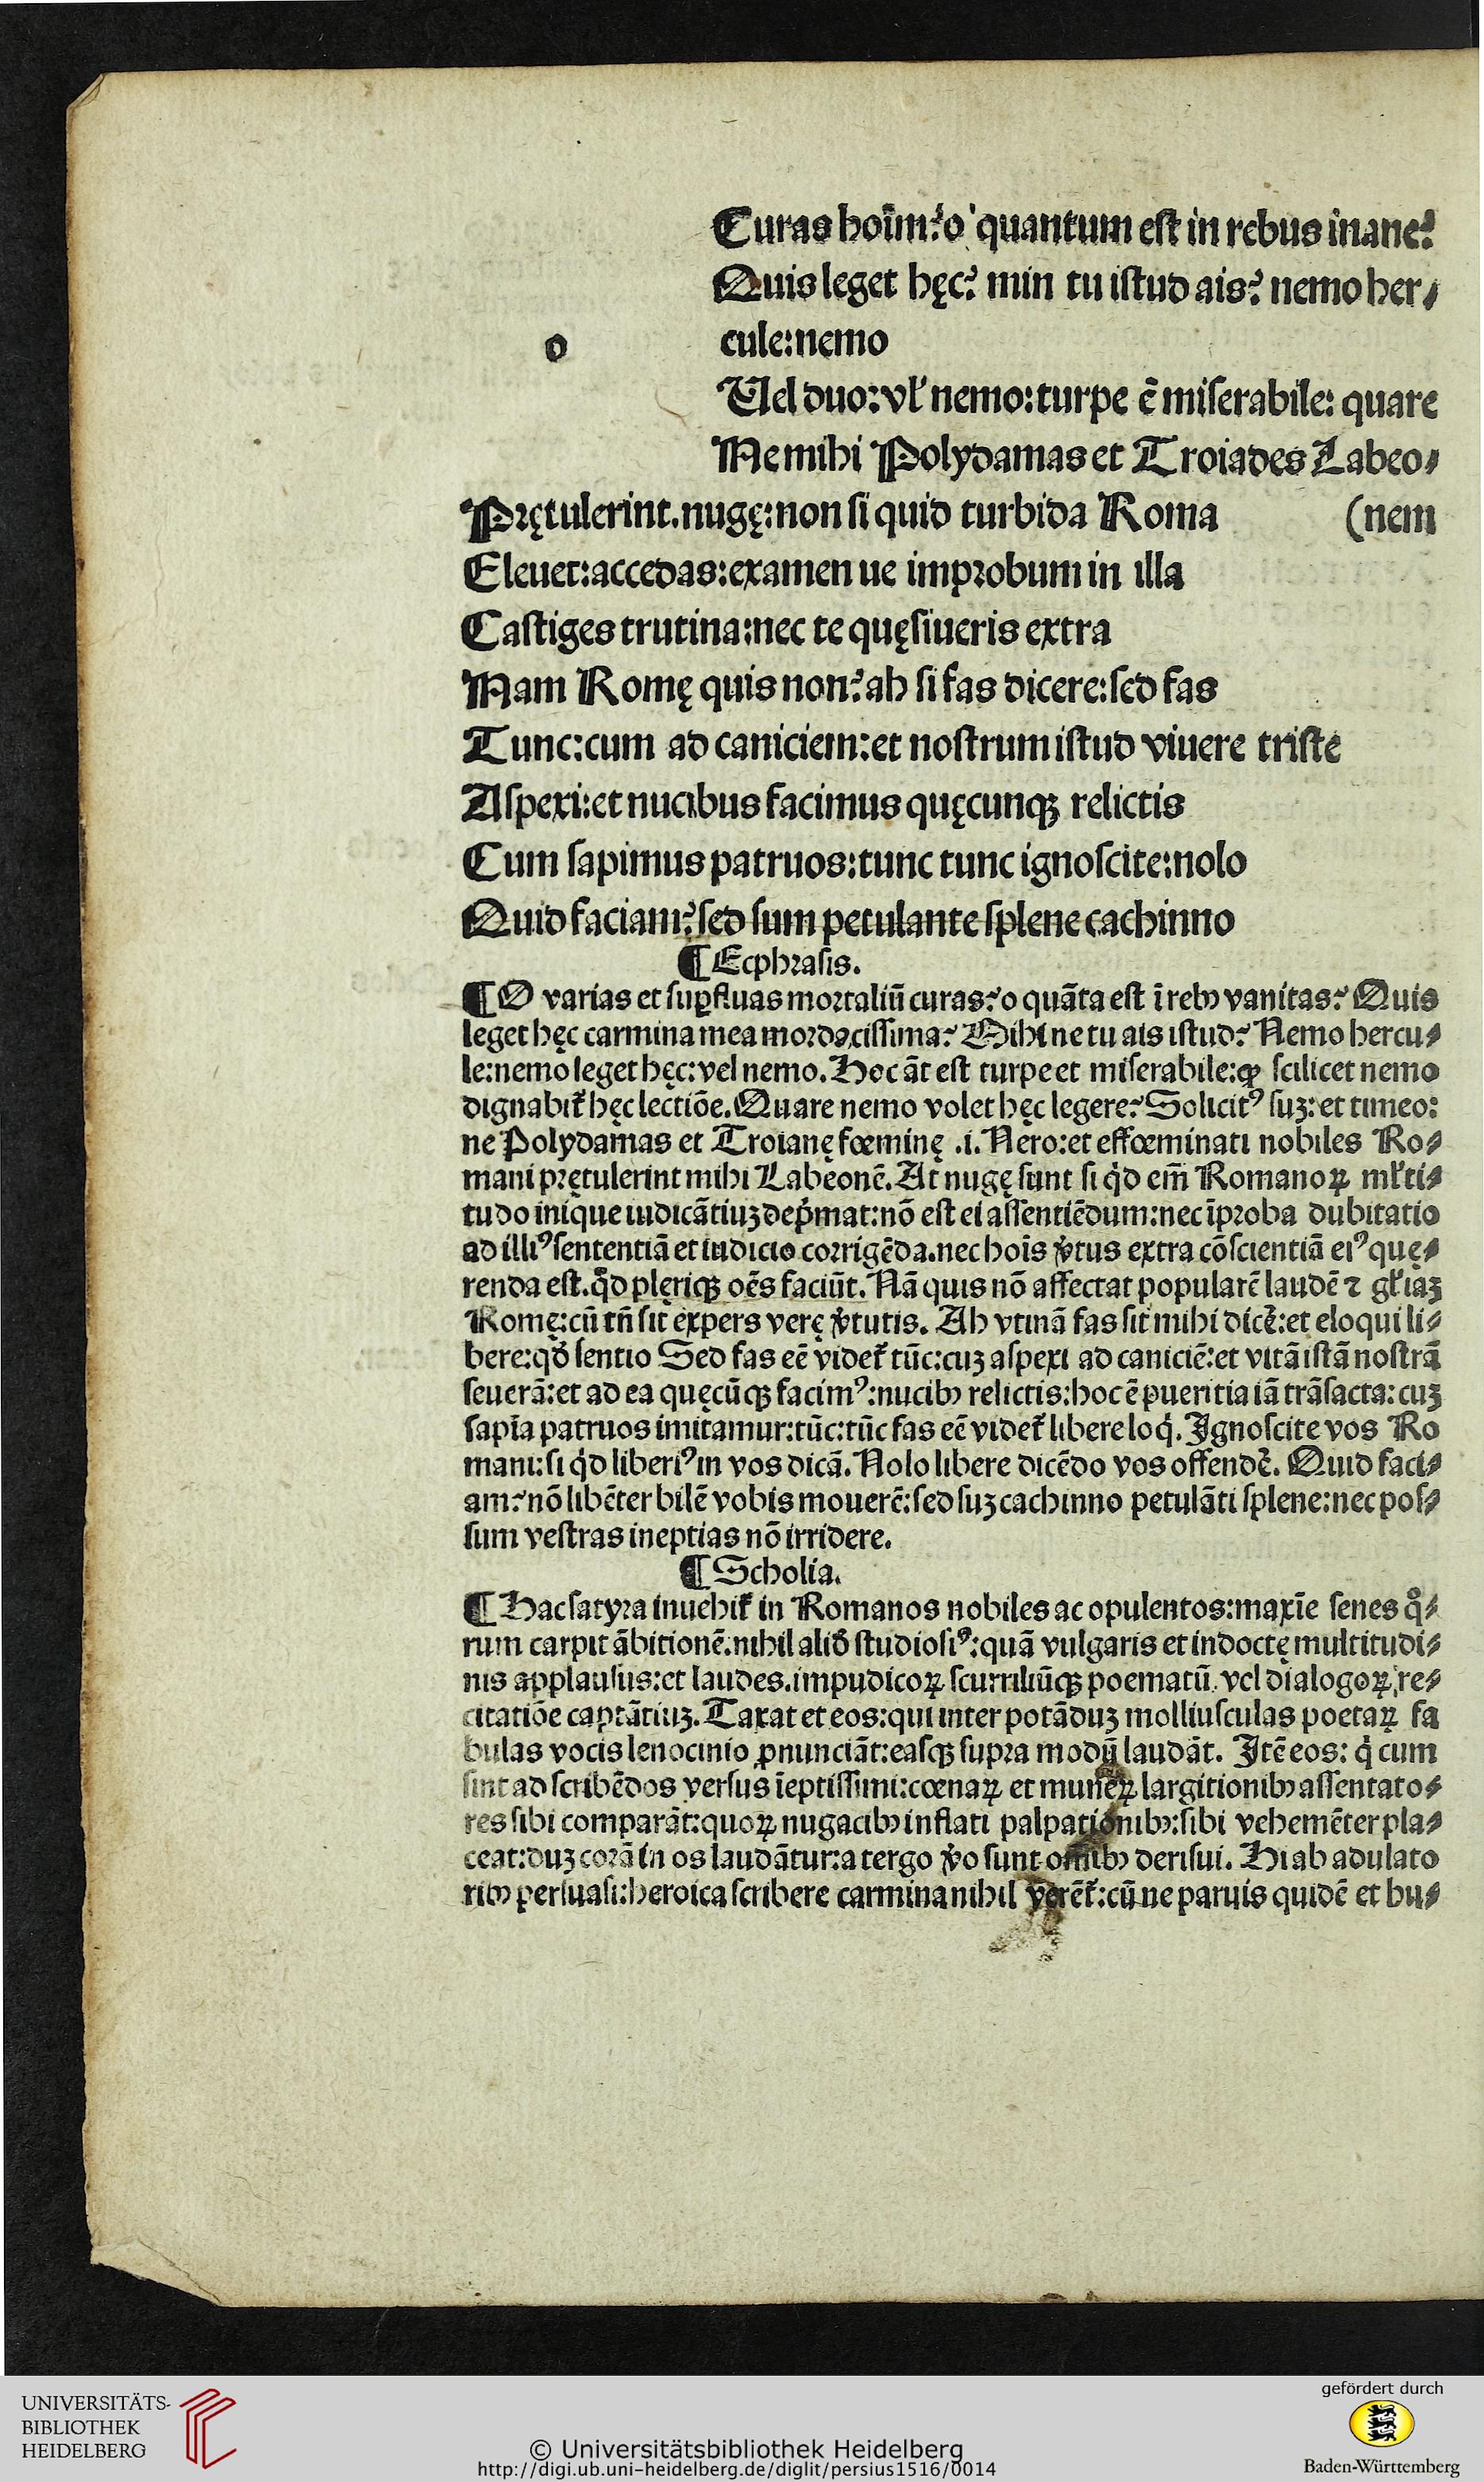 Curas hoim̄? o quantum est in rebus inane?
Quis leget hęc? min tu istud ais? nemo her⸗
o
cule: nemo
Uel duo: vl' nemo: turpe ē miserabile: quare
Ne mihi Polydamas et Troiades Labeo⸗
Prętulerint. nugę: non si quid turbida Roma (nem
Eleuet: accedas: examen ue improbum in illa
Castiges trutina: nec te quęsiueris extra
Nam Romę quis non? ah si fas dicere: sed fas
Tunc: cum ad caniciem: et nostrum istud viuere triste
Aspexi: et nucibus facimus quęcunqꝫ relictis
Cum sapimus patruos: tunc tunc ignoscite: nolo
Quid faciam? sed sum petulante splene cachinno
¶ Ecphrasis.
¶ O varias et suꝑfluas mortaliū curas? o quāta est ī rebꝰ vanitas? Quis
leget hęc carmina mea mordacissima? Mihi ne tu ais istud? Nemo hercu⸗
le: nemo leget hęc: vel nemo. Hoc āt est turpe et miserabile: ꝙ scilicet nemo
dignabit᷑ hęc lectiōe. Quare nemo volet hęc legere? Solicitꝰ suꝫ: et timeo:
ne Polydamas et Troianę fœminę .i. Nero: et effœminati nobiles Ro⸗
mani prętulerint mihi Labeonē. At nugę sunt si qͥd em̄ Romanoꝝ ml'ti⸗
tudo inique iudicātiuꝫ dep̄mat: nō est ei assentiēdum: nec īproba dubitatio
ad illiꝰ sententiā et iudicio corrigēda. nec hoīs v̓tus extra cōscientiā eiꝰ quę⸗
renda est. qͦd plęriqꝫ oēs faciūt. Nā quis nō affectat popularē laudē ⁊ gl'iaꝫ
Romę: cū tn̄ sit expers verę v̓tutis. Ah vtinā fas sit mihi dicē̓: et eloqui li⸗
bere: qđ sentio Sed fas eē videt᷑ tūc: cuꝫ aspexi ad caniciē: et vitā istā nostrā
seuerā: et ad ea quęcūqꝫ facimꝰ: nucibꝰ relictis: hoc ē pueritia iā trāsacta: cuꝫ
sapīa patruos imitamur: tūc: tūc fas eē videt᷑ libere loqͥ. Ignoscite vos Ro
mani: si qͥd liberiꝰ in vos dicā. Nolo libere dicēdo vos offendē̓. Quid faci⸗
am? nō libēter bilē vobis mouerē: sed suꝫ cachinno petulāti splene: nec pos⸗
sum vestras ineptias nō irridere.
¶ Scholia.
¶ Hac satyra inuehit᷑ in Romanos nobiles ac opulentos: maxīe senes qͦ⸗
rum carpit ābitionē. nihil aliđ studiosiꝰ: quā vulgaris et indoctę multitudi⸗
nis applausus: et laudes. impudicoꝝ scurriliūqꝫ poematū. vel dialogoꝝ, re⸗
citatiōe captātiuꝫ. Taxat et eos: qui inter potāduꝫ molliusculas poetaꝝ fa
bulas vocis lenocinio ꝓnunciāt: easqꝫ supra modū laudāt. Itē eos: qͥ cum
sint ad scribēdos versus īeptissimi: cœnaꝝ et muneꝝ largitionibꝰ assentato⸗
res sibi comparāt: quoꝝ nugacibꝰ inflati palpationibꝰ: sibi vehemēter pla⸗
ceāt: duꝫ corā in os laudātur: a tergo v̓o sunt omībꝰ derisui. Hi ab adulato
ribꝰ persuasi: heroica scribere carmina nihil verēt᷑: cū ne paruis quidē et bu⸗
UNIVERSITÄTS-
BIBLIOTHEK
HEIDELBERG
© Universitätsbibliothek Heidelberg
http://digi.ub.uni-heidelberg.de/diglit/persius1516/0014
gefördert durch
Baden-Württemberg